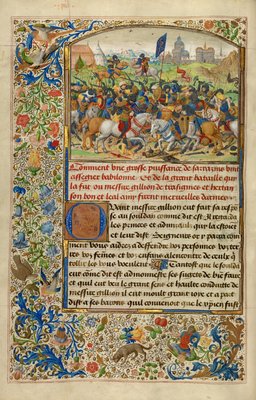 Comment une grosse puissance de sarrazins vont
assegier babilonne Et de la grande bataille qui
la fut ou messire gillion de trasignies et hertan
son bon et leal amy firent merveilles darmes
Quant messire gillion eut fait sa res
se au souldan comme dit est Il manda
les princes et admiraulx qui la estoiēt
et leur dist Seigneurs se y par a com
ment vous aidiez a deffendre vos personnes vos ter
res vos femes et vos enfans alencontre de ceulx q
tollir les vous veulent Tantost que le souldā
eut cōme dit est admonneste ses subgetz de biē faire
et quil eut veu le grant sens et haulte conduite de
messire gillion il eut moult grant ioye et a part
dist a ses barons quil convenoit que le xpien fust